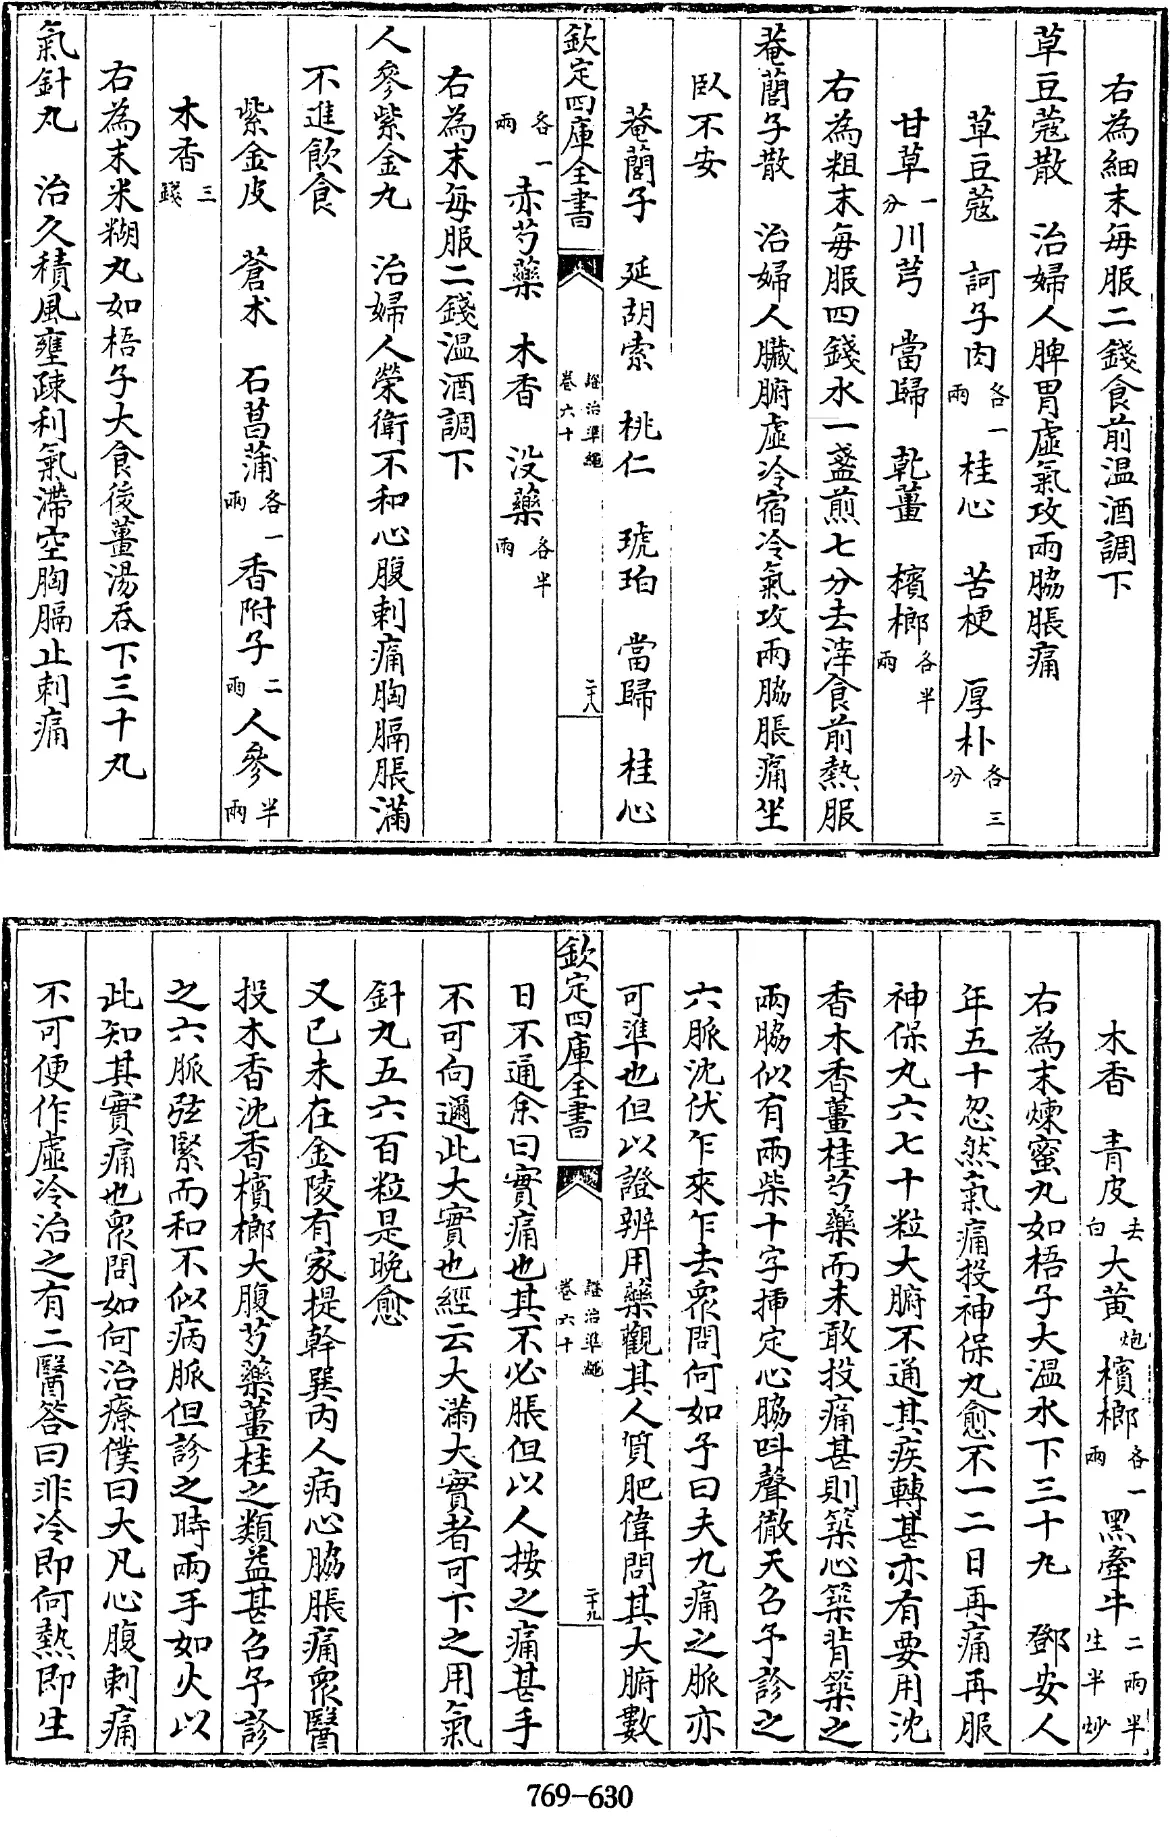 右為細末毎服二錢食前温酒調下
草豆蔻散　治婦人脾胃虛氣攻兩脇脹痛
草豆蔻　訶子肉各一兩　桂心　苦梗　厚朴各三分
甘草一分　川芎　當歸　乾薑　檳榔各半兩
右為粗末毎服四錢水一盞煎七分去滓食前熱服
菴䕡子散　治婦人臟腑虛冷宿冷氣攻兩脇脹痛坐
臥不安
菴䕡子　延胡索　桃仁　琥珀　當歸　桂心
欽定四庫全書　證治準繩卷六十　二十八
各一兩　赤芍藥　木香　没藥各半兩
右為末毎服二錢温酒調下
人參紫金丸　治婦人榮衛不和心腹刺痛胸膈脹滿
不進飲食
紫金皮　蒼朮　石菖蒲各一兩　香附子二兩　人參半兩
木香三錢
右為末米糊丸如梧子大食後薑湯吞下三十丸
氣針丸　治久積風壅疎利氣滯空胸膈止刺痛
木香　青皮去白　大黃炮　檳榔各一兩　黑牽牛二兩半生半炒
右為末煉蜜丸如梧子大温水下三十丸　鄧安人
年五十忽然氣痛投神保丸愈不一二日再痛再服
神保丸六七十粒大腑不通其疾轉甚亦有要用沈
香木香薑桂芍藥而未敢投痛甚則築心築背築之
兩脇似有兩柴十字揷定心脇呌聲徹天召予診之
六脈沈伏乍來乍去衆問何如予曰夫九痛之脈亦
可準也但以證辨用藥觀其人質肥偉問其大腑數
欽定四庫全書　證治準繩卷六十　二十九
日不通余曰實痛也其不必脹但以人按之痛甚手
不可向邇此大實也經云大滿大實者可下之用氣
針丸五六百粒是晚愈
又已未在金陵有家提幹巽内人病心脇脹痛衆醫
投木香沈香檳榔大腹芍藥薑桂之類益甚召予診
之六脈弦緊而和不似病脈但診之時兩手如火以
此知其實痛也衆問如何治療僕曰大凡心腹刺痛
不可便作虛冷治之有二醫答曰非冷即何熱即生
769-630